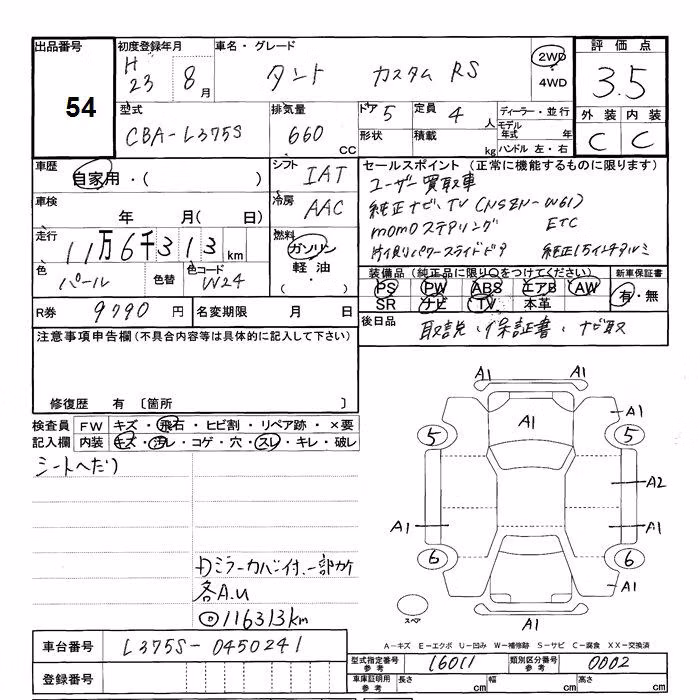 出品番号 初度登録年月 車名・グレード 評価点
54 H23 8月 タント カスタム RS 2WD 4WD 3.5
型式 排気量 ドア 5 定員 4人 ディーラー・並行 外装 内装
CBA-L375S 660 CC 形状 積載 kg モデル年式 年 C C
ハンドル 左・右
車歴 自家用・( ) シフト IAT セールスポイント (正常に機能するものに限ります)
ユーザー買取車
車検 年 月( 日) 冷房 AAC 純正ナビ、TV (NSZN-W61)
momoステアリング ETC
走行 11万6千313km 燃料 ガソリン 軽油・( ) 片側パワースライドドア 純正15インチアルミ
色 パール 色替 色コード W24 装備品(純正品に限り○をつけてください) 新車保証書
PS PW ABS エアB AW 有・無
SR ナビ TV 本革
R券 9790円 名変期限 月 日 後日品 取説、保証書、ナビ取
注意事項申告欄(不具合内容等は具体的に記入して下さい)
修復歴 有 〔箇所 〕
検査員 FW キズ・飛石・ヒビ割・リペア跡・×要
記入欄 内装 キズ・汚レ・コゲ・穴・スレ・キレ・破レ
シートへたり
ミラーカバー付、一部カケ
各A.U
◎116313km
A1 A1
A1 A1
5 5
A2
A1 A1
6 6
A1
A1
スペア
A-キズ E-エクボ U-凹み W-補修跡 S-サビ C-腐食 XX-交換済
車台番号 L375S-0450241 型式指定番号 参考 16011 類別区分番号 参考 0002
登録番号 車庫証明用 参考 長さ cm 幅 cm 高さ cm